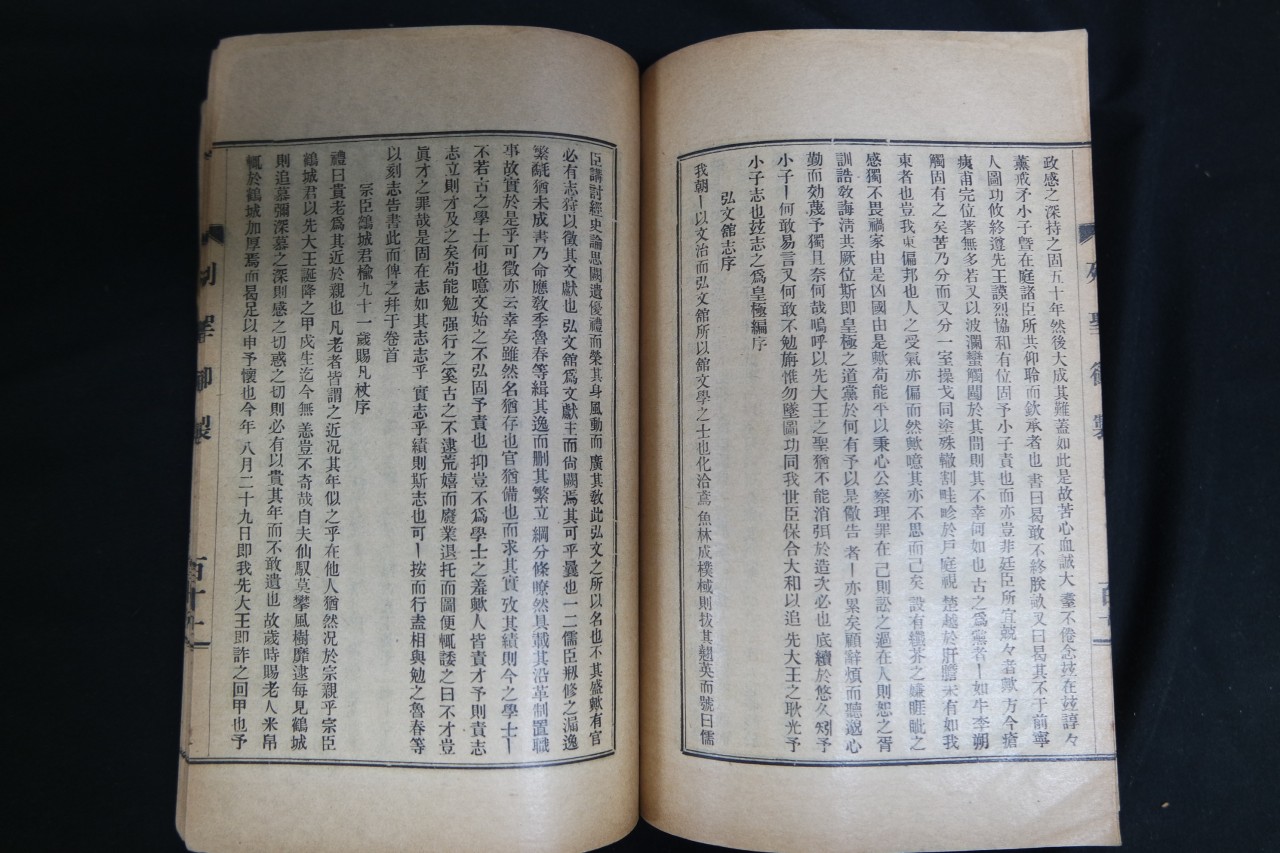 列聖御製
政感之深持之固五十年然後大成其難蓋如此是故苦心血誠大耋不倦念玆在玆諄々
薰戒矛小子曁在庭諸臣所共仰聆而欽承者也書曰曷敢不終朕畝又曰曷其不于前寧
人圖功攸終遵先王謨烈協和有位固予小子責也而亦豈非廷臣所宜兢々者歟方今瘡
痍甫完位著無多若又以波瀾蠻觸鬪於其間則其不幸何如也古之爲黨者ー如牛李朔
觸固有之矣苦乃分而又分一室操戈同塗殊轍割畦畛於戶庭視楚越於肝膽未有如我
東者也豈我東偏邦也人之受氣亦偏而然歟噫其亦不思而已矣設有纖芥之嫌睚眦之
感獨不畏禍家由是凶國由是歟荀能平以秉心公察理罪在己則訟之過在人則恕之胥
訓誥敎誨淸共厥位斯卽皇極之道黨於何有予以是儆告者ー亦累矣顧辭煩而聽邈心
勤而効蔑予獨且奈何哉嗚呼以先大王之聖猶不能消弭於造次必也底績於悠久矧予
小子ー何敢易言又何敢不勉旃惟勿墜圖功同我世臣保合大和以追先大王之耿光予
小子志也玆志之爲皇極編序
弘文舘志序
我朝ー以文治而弘文舘所以舘文學之士也化洽鳶魚林成樸棫則拔其翹英而號曰儒
臣講討經史論思闕遺優禮而榮其身風動而廣其敎此弘文之所以名也不其盛歟有官
必有志符以徵其文獻也弘文舘爲文獻主而尙闕焉其可乎曩也一二儒臣刱修之漏逸
繁氄猶未成書乃命應敎季魯春等緝其逸而删其繁立綱分條瞭然具載其沿革制置職
事故實於是乎可徵亦云幸矣雖然名猶存也官猶備也而求其實攷其績則今之學士ー
不若古之學士何也噫文始之不弘固予責也抑豈不爲學士之羞歟人皆責才予則責志
志立則才及之矣苟能勉强行之奚古之不逮荒嬉而廢業退托而圖便輒諉之曰不才豈
眞才之罪哉是固在志如其志志乎實志乎績則斯志也可ー按而行盍相與勉之魯春等
以刻志告書此而俾之弁于卷首
宗臣鶴城君楡九十一歲賜凡杖序
禮曰貴老爲其近於親也凡老者皆謂之近况其年似之乎在他人猶然况於宗親乎宗臣
鶴城君以先大王誕降之甲戌生迄今無恙豈不奇哉自夫仙馭莫攀風樹靡逮每見鶴城
則追慕彌深慕之深則感之切惑之切則必有以貴其年而不敢遺也故歲時賜老人米帛
輒於鶴城加厚焉而曷足以申予懷也今年八月二十九日卽我先大王卽詐之回甲也予
列聖御製
百十一